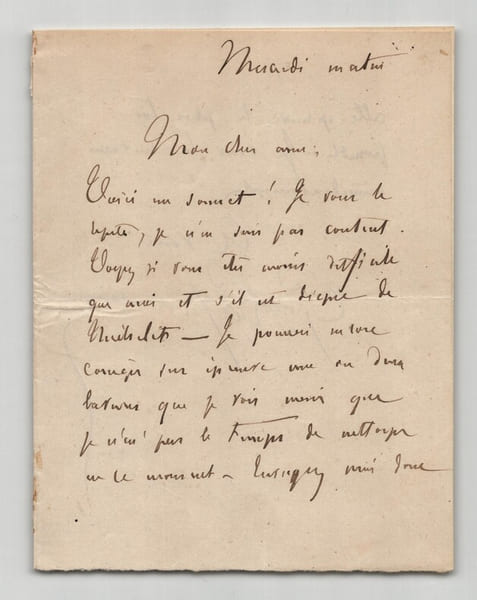 Mercredi matin
Mon cher ami,
Voici un sonnet ! Je vous le
repète, je n'en suis pas content.
Voyez si vous êtes moins difficile
que moi et s'il est digne de
— Je pourrai encore
corriger sur épreuve une ou deux
bavures que je vois mais que
je n'ai pas le temps de nettoyer
en ce moment — Envoyez moi donc